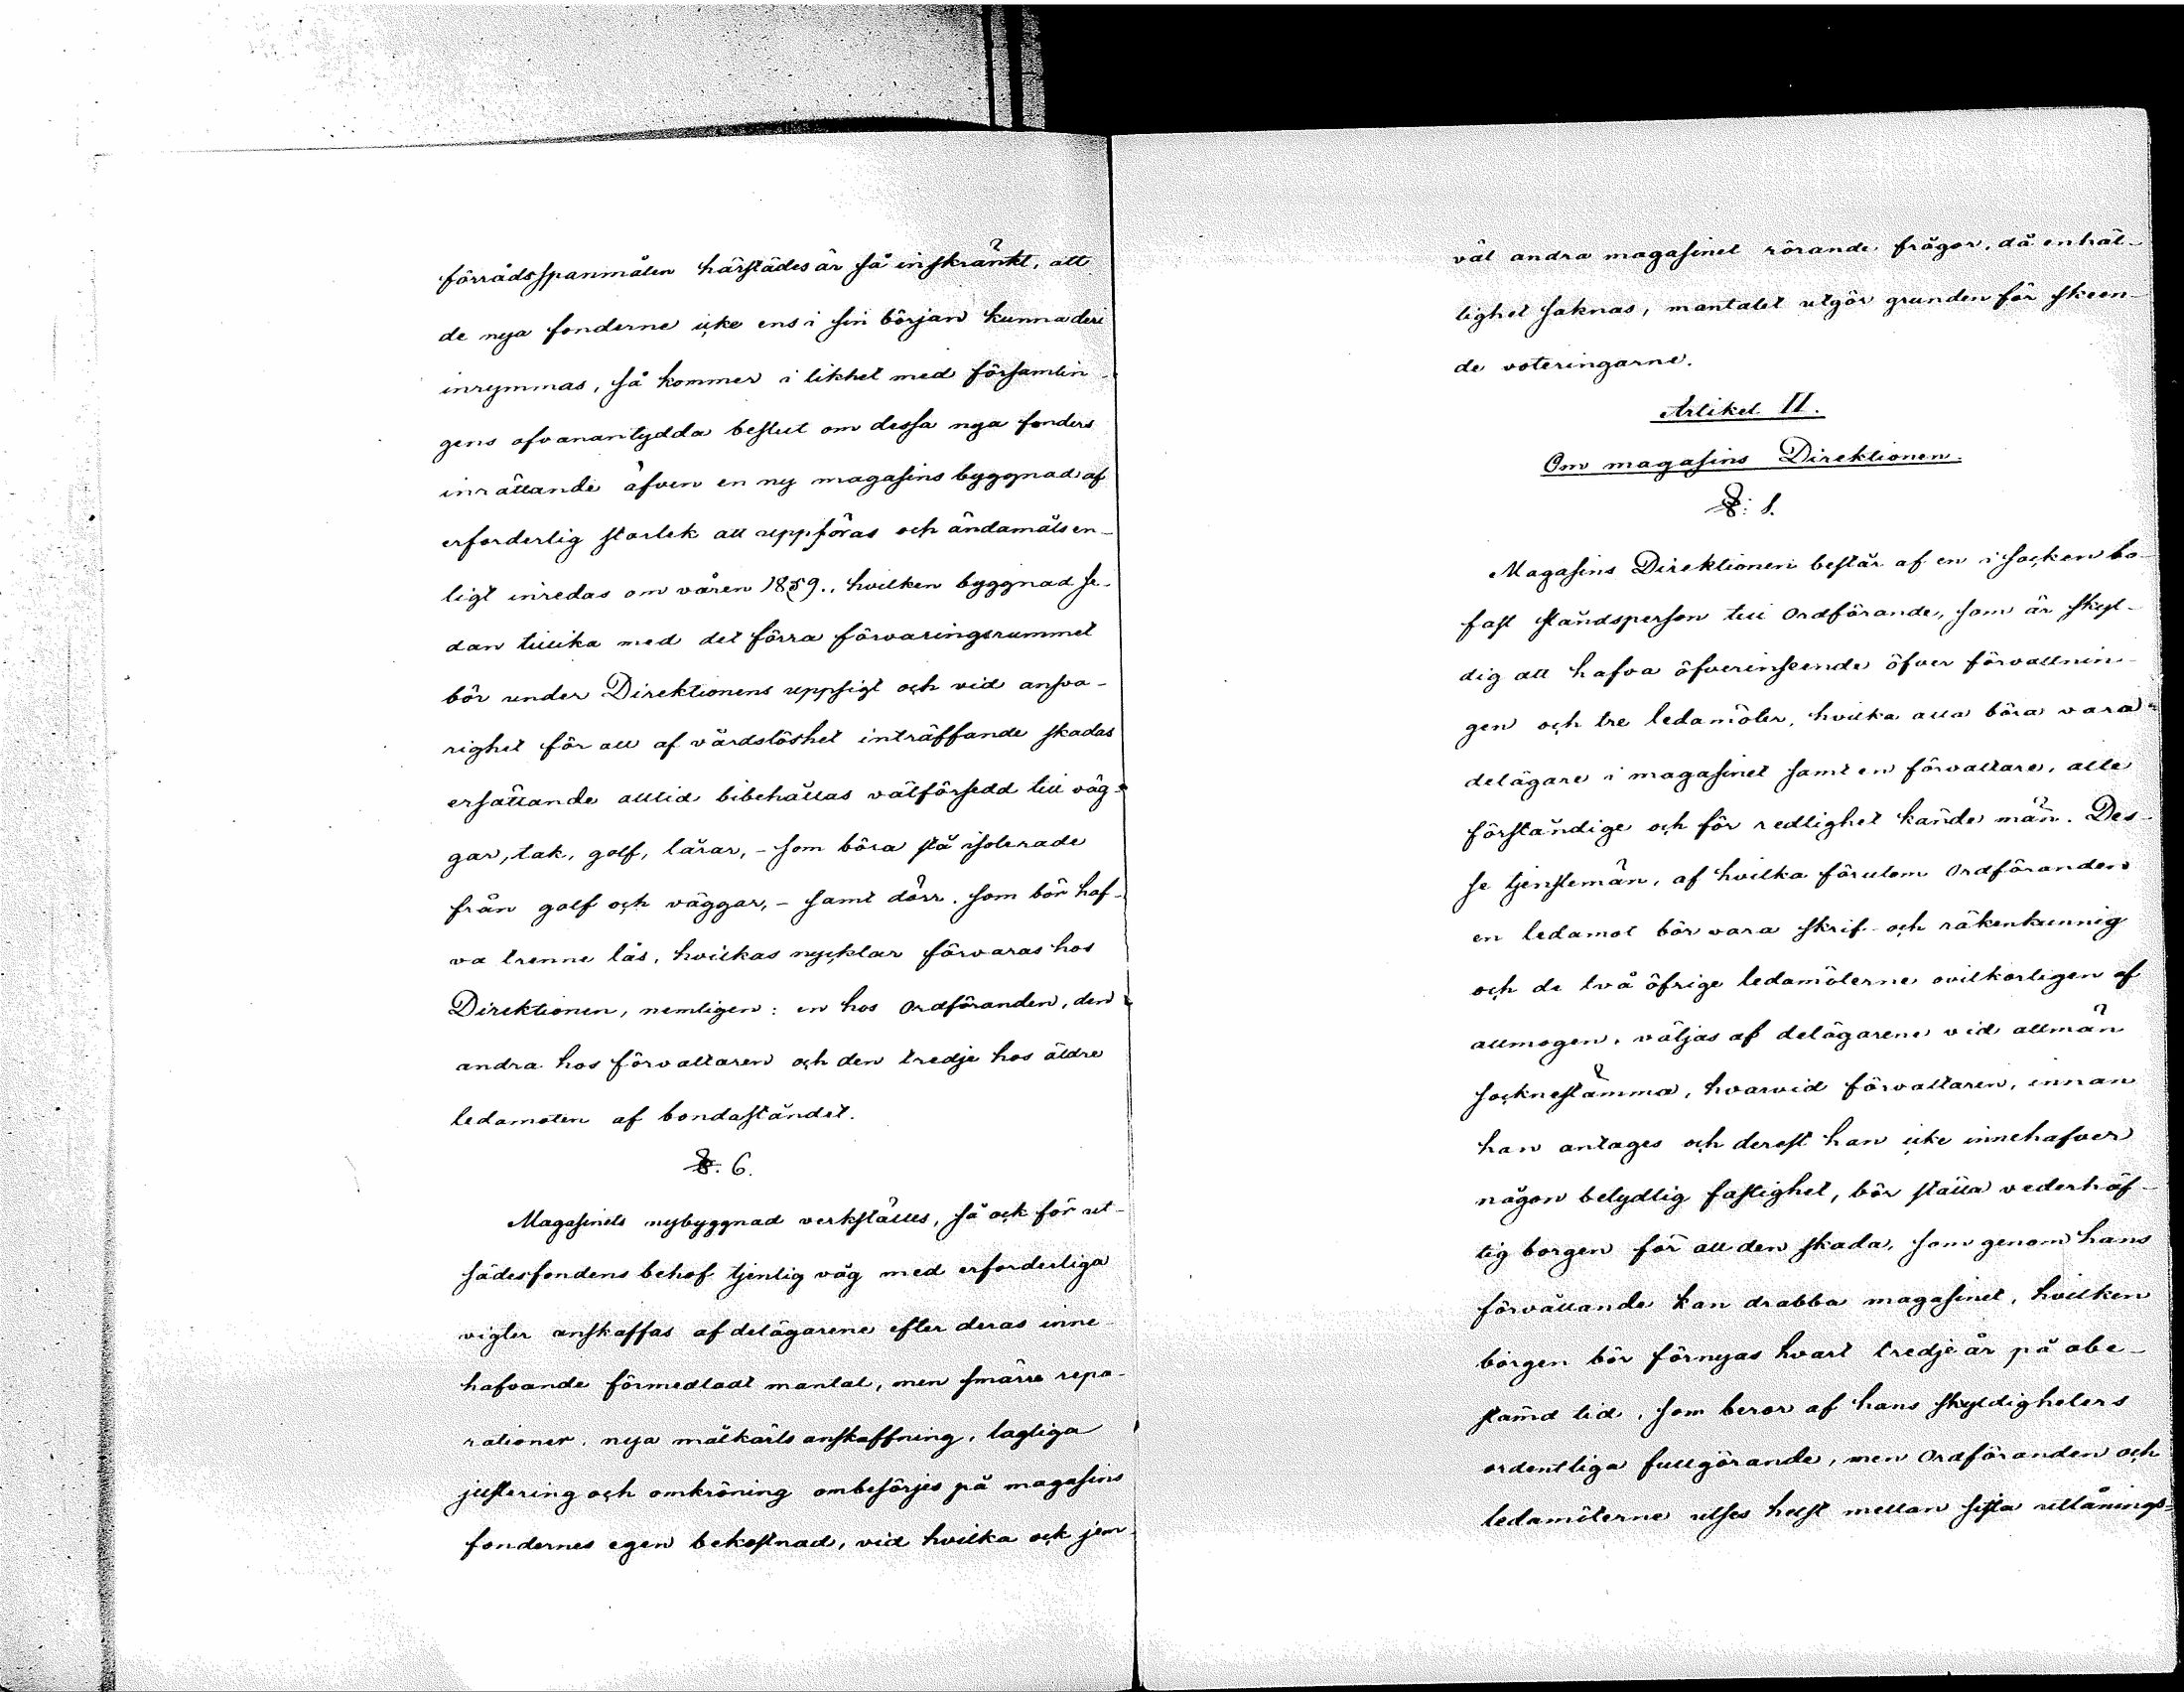 förrådsspanmålen härstädes är så inskränkt, att
de nya fonderne icke ens i sin början kunna deri
inrymmas, så kommer i likhet med församlin-
gens ofvanantydda beslut om dessa nya fonders
inrättande äfven en ny magasins byggnad af
erforderlig storlek att uppföras och ändamålsen-
ligt inredas om våren 1859., hvilken byggnad se-
dan tillika med det förra förvaringsrummet
bör under Direktionens uppsigt och vid ansva-
righet för all af vårdslöshet inträffande skadas
ersättande alltid bibehållas välförsedd till väg-
gar, tak, golf, lårar, - som böra stå isolerade
från golf och väggar, - samt dörr. som bör haf-
va trenne lås, hvilkas nycklar förvaras hos
Direktionen, nemligen: en hos Ordföranden, den
andra hos förvaltaren och den tredje hos äldre
ledamoten af bondaståndet.
§. 6.
Magasinets nybyggnad verkställes, så ock för ut-
sädesfondens behof tjenlig våg med erforderliga
vigter anskaffas af delägarene efter deras inne-
hafvande förmedladt mantal, men smärre repa-
rationer, nya målkärls anskaffning, lagliga
justering och omkröning ombesörjes på magasins
fondernes egen bekostnad, vid hvilka ock jem-
väl andra magasinet rörande frågor, då enhäl-
lighet saknas, mantalet utgör grunden för skeen-
de voteringarne.
Artikel II.
Om magasins Direktionen.
§: 1.
Magasins Direktionen består af en i socken bo-
fast ståndsperson till Ordförande, som är skyl-
dig att hafva öfverinseende öfver förvaltnin-
gen och tre ledamöter, hvilka alla böra vara
delägare i magasinet samt en förvaltare, alle
förståndige och för redlighet kände män. Des-
se tjenstemän, af hvilka förutom Ordföranden
en ledamot bör vara skrif- och räkenkunnig
och de två öfrige ledamöterne ovilkorligen af
allmogen, väljas af delägarene vid allmän
socknestämma, hvarvid förvaltaren, innan
han antages och derest han icke innehafver
någon betydlig fastighet, bör ställa vederhäf-
tig borgen för all den skada, som genom hans
förvållande kan drabba magasinet, hvilken
borgen bör förnyas hvart tredje år på obe-
stämd tid, som beror af hans skyldigheters
ordentliga fullgörande, men Ordföranden och
ledamöterne utses helst mellan sista utlånings-